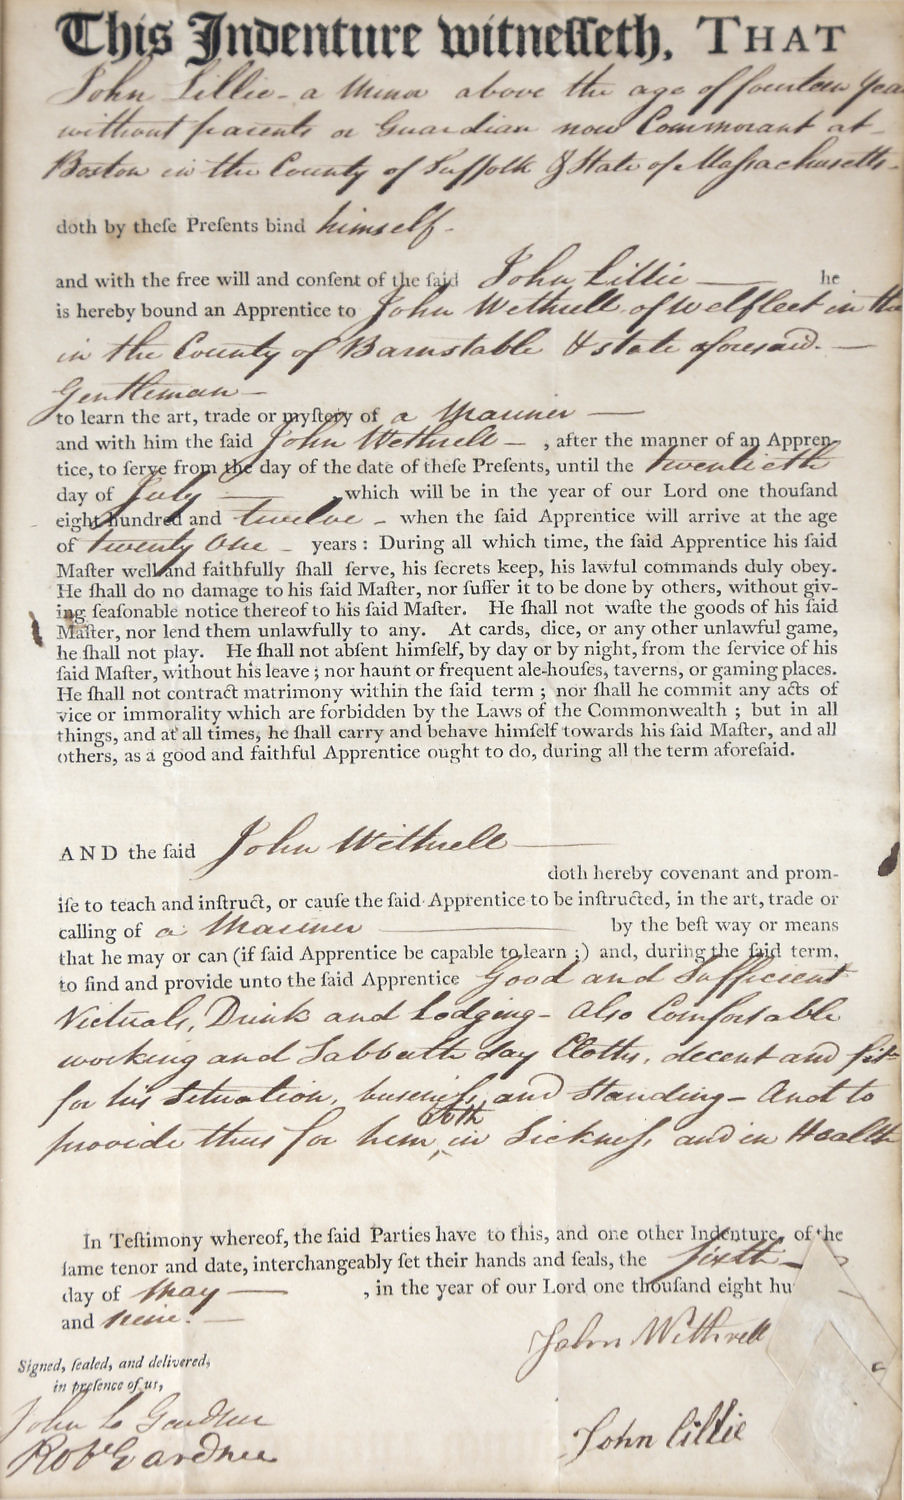 This Indenture witneſſeth, THAT
John Lillie - a Minor above the age of fourteen Year
without parents or Guardian now Commorant at -
Boston in the County of Suffolk & State of Maſsachusetts -
doth by theſe Preſents bind himself -
and with the free will and conſent of the ſaid John Lillie — he
is hereby bound an Apprentice to John Wethrell of Welfleet in the
in the County of Barnstable & state aforesaid. —
Gentleman —
to learn the art, trade or myſtery of a Mariner —
and with him the ſaid John Wethrell — , after the manner of an Appren-
tice, to ſerve from the day of the date of theſe Preſents, until the twentieth
day of July — , which will be in the year of our Lord one thouſand
eight hundred and twelve - when the ſaid Apprentice will arrive at the age
of twenty One - years : During all which time, the ſaid Apprentice his ſaid
Maſter well and faithfully ſhall ſerve, his ſecrets keep, his lawful commands duly obey.
He ſhall do no damage to his ſaid Maſter, nor ſuffer it to be done by others, without giv-
ing ſeaſonable notice thereof to his ſaid Maſter. He ſhall not waſte the goods of his ſaid
Maſter, nor lend them unlawfully to any. At cards, dice, or any other unlawful game,
he ſhall not play. He ſhall not abſent himſelf, by day or by night, from the ſervice of his
ſaid Maſter, without his leave ; nor haunt or frequent ale-houſes, taverns, or gaming places.
He ſhall not contract matrimony within the ſaid term ; nor ſhall he commit any acts of
vice or immorality which are forbidden by the Laws of the Commonwealth ; but in all
things, and at all times, he ſhall carry and behave himſelf towards his ſaid Maſter, and all
others, as a good and faithful Apprentice ought to do, during all the term aforeſaid.
AND the ſaid John Wethrell —
doth hereby covenant and prom-
iſe to teach and inſtruct, or cauſe the ſaid Apprentice to be inſtructed, in the art, trade or
calling of a Mariner — by the beſt way or means
that he may or can (if ſaid Apprentice be capable to learn ;) and, during the ſaid term,
to find and provide unto the ſaid Apprentice Good and Sufficient
Victuals, Drink and Lodging - also Comfortable
working and Sabbath day Cloths, decent and fit
for his Situation, buseneſs, and Standing - And to
both
provide thus for him, in Sickneſs, and in Health
In Teſtimony whereof, the ſaid Parties have to this, and one other Indenture, of the
ſame tenor and date, interchangeably ſet their hands and ſeals, the sixth —
day of May — , in the year of our Lord one thouſand eight hu
and nine. —
John Wethrell
Signed, ſealed, and delivered,
in preſence of us,
John Gardner
John Lillie
Robt Gardner